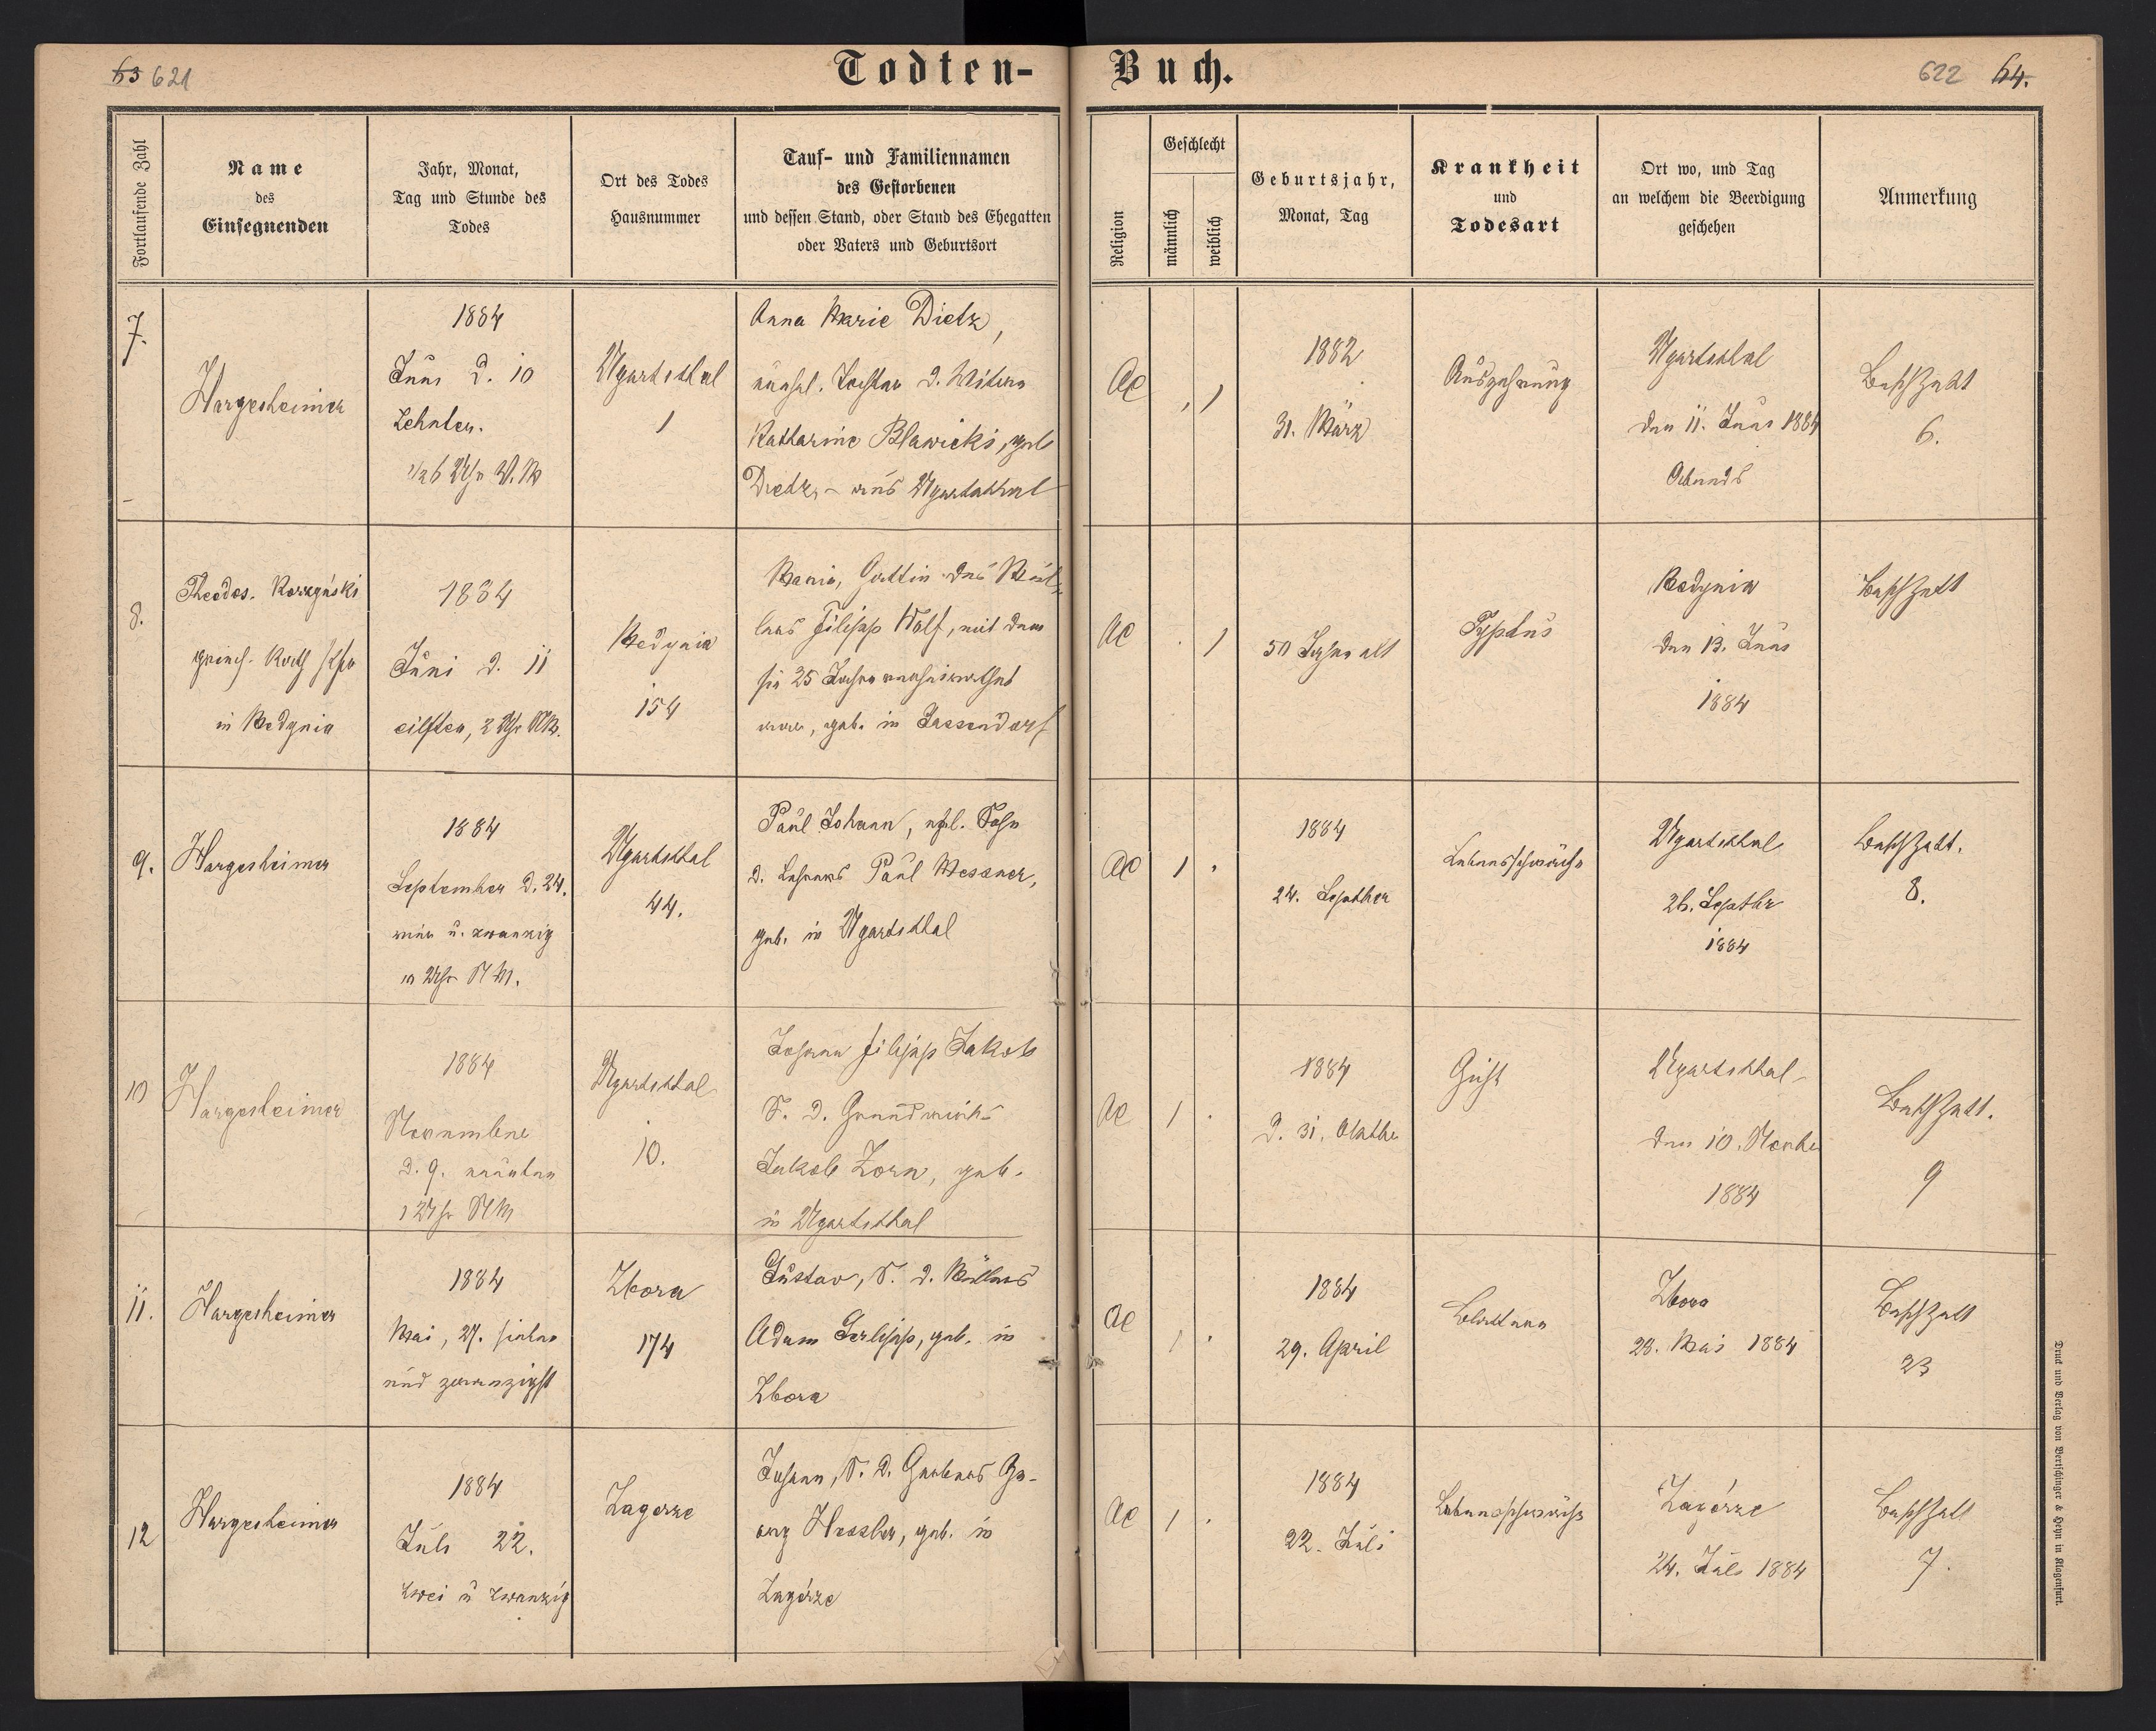 63 621
Todten-
Buch.
622 64.
Fortlaufende Zahl
Name
des
Einsegnenden
Jahr, Monat,
Tag und Stunde des
Todes
Ort des Todes
Hausnummer
Tauf- und Familiennamen
des Gestorbenen
und dessen Stand, oder Stand des Ehegatten
oder Vaters und Geburtsort
Religion
Geschlecht
männlich
weiblich
Geburtsjahr,
Monat, Tag
Krankheit
und
Todesart
Ort wo, und Tag
an welchem die Beerdigung
geschehen
Anmerkung
7.
Hargesheimer
1884
Juni d. 10
Zehnten.
1/2 6 Uhr V. M
Ugartsthal
1
Anna Marie Dietz,
unehel. Tochter d. Witwe
Katharine Blawicki, geb
Dietz, aus Ugartsthal
AC
1
1882
31. März
Auszehrung
Ugartsthal
den 11. Juni 1884
Abends
Beschzett
6.
8.
Theodos. Korzyński
griech. Kath
in Medynia
1884
Juni d. 11
eilften, 2 Uhr NM.
Medynia
154
Maria, Gattin des Mül-
lers Filipp Wolf, mit dem
sie 25 Jahre verheirathet
war, geb. in Jassendorf
AC
1
50 Jahre alt
Typhus
Medynia
den 13. Juni
1884
Beschzett
9.
Hargesheimer
1884
September d. 24.
vier u. zwanzig
10 Uhr N M.
Ugartsthal
44.
Paul Johann, ehl. Sohn
d. Lehrers Paul Messner,
geb. in Ugartsthal
AC
1
1884
24. Septber
Lebensschwäche
Ugartsthal
26. Septbr
1884
Beschzett.
8.
10
Hargesheimer
1884
November
d. 9. neunten
1 Uhr NM
Ugartsthal
10.
Johann Filipp Jakob
S. d. Grundwirths
Jakob Zorn, geb.
in Ugartsthal
AC
1
1884
d. 31. Oktbr
Gicht
Ugartsthal
den 10. Novbr
1884
Beschzett.
9
11.
Hargesheimer
1884
Mai, 27. sieben
und zwanzigst
Zbora
174
Gustav, S. d. Müllers
Adam Gerlipp, geb. in
Zbora
AC
1
1884
29. April
Blattern
Zbora
28. Mai 1884
Beschzett
23
12
Hargesheimer
1884
Juli 22.
zwei u zwanzig
Zagorze
Johann, S. d. Gerbers Ge-
org Hessler, geb. in
Zagórze
AC
1
1884
22. Juli
Lebensschwäche
Zagórze
24. Juli 1884
Beschzett
7.
Druck und Verlag von Bertschinger & Heyn in Klagenfurt.